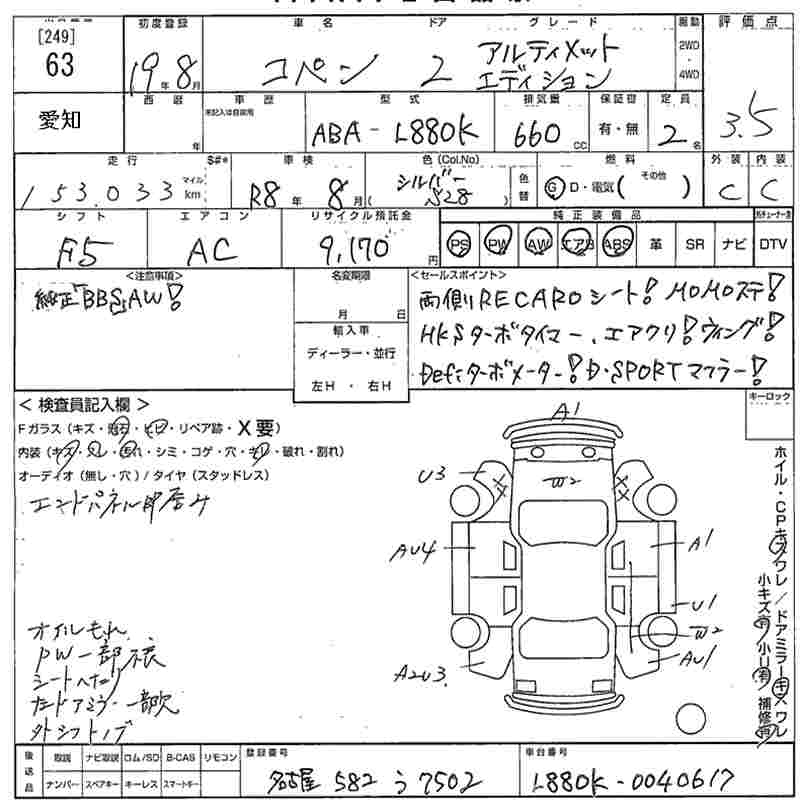 [249]
63
初度登録
車名
ドア
グレード
駆動
評価点
19年8月
コペン
2
アルティメット
エディション
2WD
・
4WD
愛知
西暦
年
車歴
未記入は自家用
型式
ABA-L880K
排気量
660cc
保証書
有・無
定員
2名
3.5
走行
マイル
153,033km
S#*
車検
R8年8月
色(Col.No)
シルバー
S28
色替
燃料
G D・電気(その他)
外装
C
内装
C
シフト
F5
エアコン
AC
リサイクル預託金
9,170円
純正装備品
PS PW AW エアB ABS 革 SR ナビ
DTV
<注意事項>
純正「BBS」AW!
名変期限
月 日
輸入車
ディーラー・並行
左H ・ 右H
<セールスポイント>
両側RECAROシート! MOMOステ!
HKSターボタイマー、エアクリ!ウィング!
Defiターボメーター!D・SPORTマフラー!
キーロック
<検査員記入欄>
Fガラス(キズ・飛石・ヒビ・リペア跡・X要)
内装(キズ・スレ・汚れ・シミ・コゲ・穴・キレ・破れ・割れ)
オーディオ(無し・穴)/タイヤ(スタッドレス)
エンドパネル押歪み
A1
U3
W2
AU4
A1
U1
W2
A2U3
AU1
オイルもれ
PW一部ﾏﾏ
シートヘタリ
左ドアミラー一部欠
外シフトノブ
ホイル・CPキズワレ/ドアミラーキズワレ
小キズ有 小U有 補修有
後送品
取説 ナビ取説 ロム/SD B-CAS リモコン
ナンバー スペアキー キーレス スマートキー
登録番号
名古屋 582 う 7502
車台番号
L880K-0040617